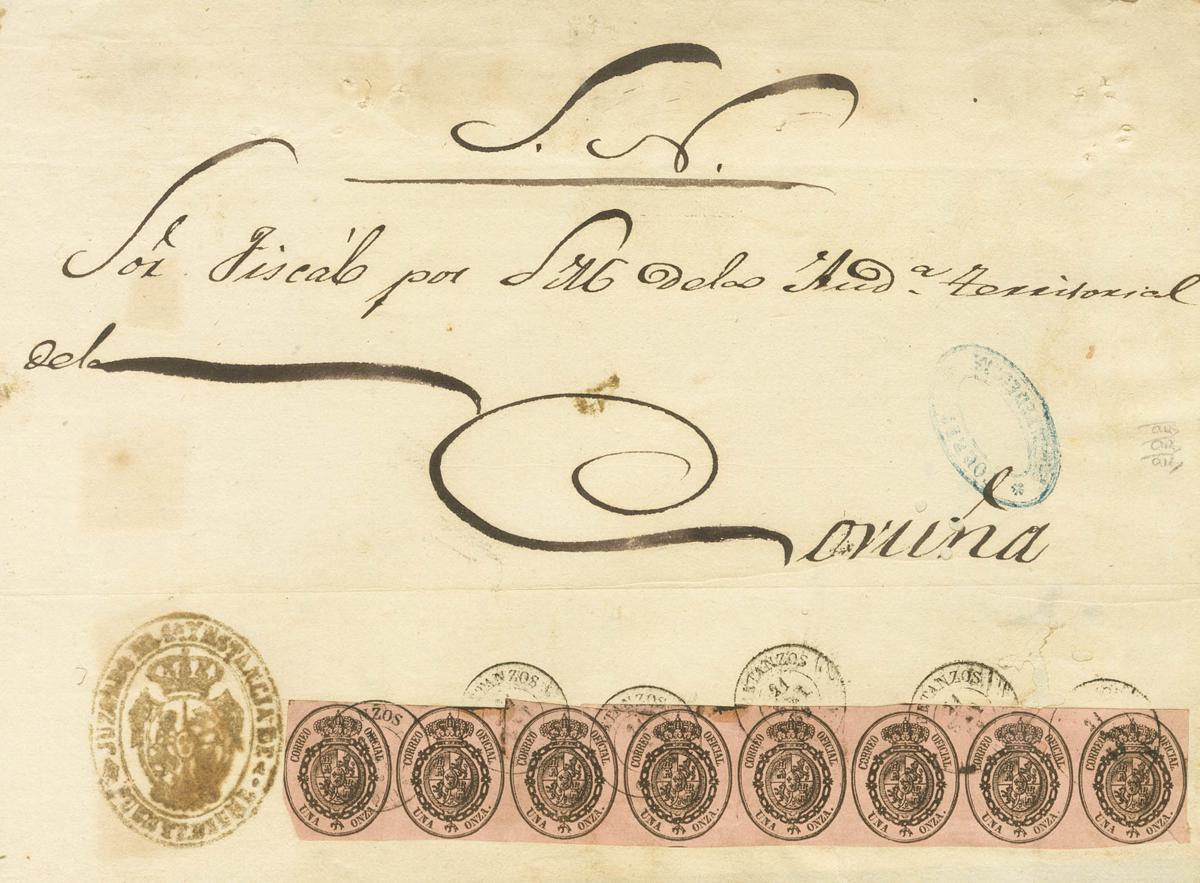 S. N.
Sor Fiscál por SM dela Auda. Territorial
dela
Coruña
JUZGADO DE 1A YNSTANCIA DE
PUENTEDEUME
BETANZOS
21
CORREO OFICIAL UNA ONZA.
CORREO OFICIAL UNA ONZA.
CORREO OFICIAL UNA ONZA.
CORREO OFICIAL UNA ONZA.
CORREO OFICIAL UNA ONZA.
CORREO OFICIAL UNA ONZA.
CORREO OFICIAL UNA ONZA.
CORREO OFICIAL UNA ONZA.